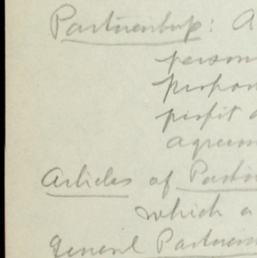 Partnership: A
person
propor
profit a
agreem
Articles of Partn
which a
General Partners